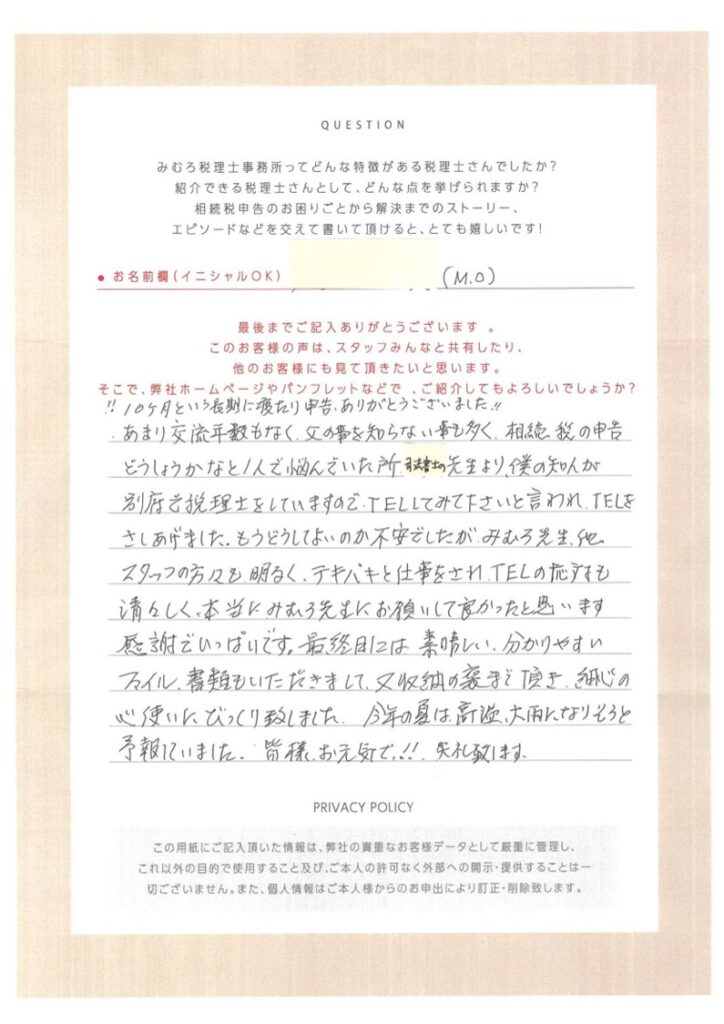 QUESTION
みむろ税理士事務所ってどんな特徴がある税理士さんでしたか?
紹介できる税理士さんとして、どんな点を挙げられますか?
相続税申告のお困りごとから解決までのストーリー、
エピソードなどを交えて書いて頂けると、とても嬉しいです!
● お名前欄(イニシャルOK) (M.O)
最後までご記入ありがとうございます 。
このお客様の声は、スタッフみんなと共有したり、
他のお客様にも見て頂きたいと思います。
そこで、弊社ホームページやパンフレットなどで 、ご紹介してもよろしいでしょうか?
!! 10ヶ月という長期に渡たり申告、ありがとうございました!!
あまり交流年数もなく、父の事を知らない事も多く、相続税の申告
どうしょうかなと1人で悩んでいた所 司法書士の先生より、僕の知人が
別府で税理士をしていますので、TELしてみて下さいと言われ、TELを
さしあげました。もうどうしてよいのか不安でしたが、みむろ先生、他
スタッフの方々も明るく、テキパキと仕事をされ、TELの応対も
清々しく、本当にみむろ先生にお願いして良かったと思います
感謝でいっぱいです。最終日には 素晴しい、分かりやすい
ファイル、書類もいただきまして、又収納の袋まで頂き、細心の
心使いに びっくり致しました。 今年の夏は、高温、大雨になりそうと
予報していました。 皆様、お元気で、!! 失礼致します。
PRIVACY POLICY
この用紙にご記入頂いた情報は、弊社の貴重なお客様データとして厳重に管理し、
これ以外の目的で使用すること及び、ご本人の許可なく外部への開示・提供することは一
切ございません。また、個人情報はご本人様からのお申出により訂正・削除致します。